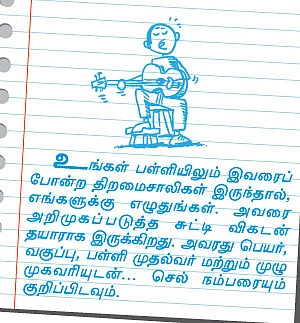 உங்கள் பள்ளியிலும் இவரைப்
போன்ற திறமைசாலிகள் இருந்தால்,
எங்களுக்கு எழுதுங்கள். அவரை
அறிமுகப்படுத்த சுட்டி விகடன்
தயாராக இருக்கிறது. அவரது பெயர்,
வகுப்பு, பள்ளி முதல்வர் மற்றும் முழு
முகவரியுடன்... செல் நம்பரையும்
குறிப்பிடவும்.